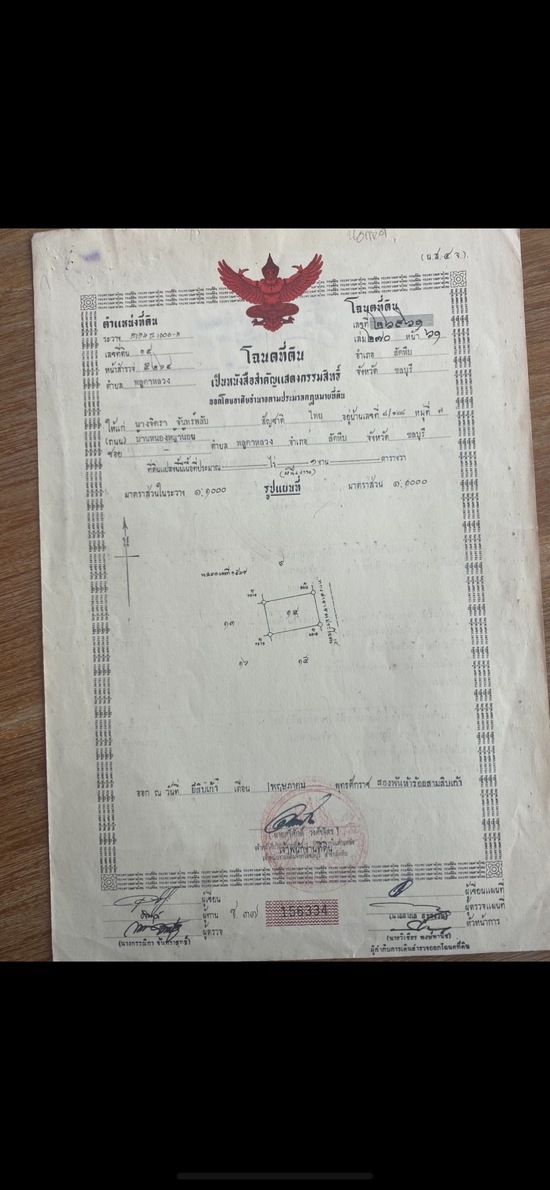 (น.ส.๔ จ.)
ตำแหน่งที่ดิน
ระวาง
เลขที่ดิน ๑๔
หน้าสำรวจ ๕๒๖๔
ตำบล พลูตาหลวง
โฉนดที่ดิน
เลขที่ ๒๖๕๖๑
เล่ม ๒๗๐ หน้า ๖๑
อำเภอ สัตหีบ
จังหวัด ชลบุรี
โฉนดที่ดิน
เป็นหนังสือสำคัญแสดงกรรมสิทธิ์
ออกโดยอาศัยอำนาจตามประมวลกฎหมายที่ดิน
ให้แก่ นางจิตรา จันทร์พลับ สัญชาติ ไทย อยู่บ้านเลขที่ หมู่ที่ ๗
(ถนน) บ้านหนองหญ้าน้อย ตำบล พลูตาหลวง อำเภอ สัตหีบ จังหวัด ชลบุรี
ซอย
ที่ดินแปลงนี้มีเนื้อที่ประมาณ ไร่ ๑ งาน ตารางวา
(หนึ่งงาน)
มาตราส่วนในระวาง ๑:๑๐๐๐ รูปแผนที่ มาตราส่วน ๑:๑๐๐๐
๙
๑๓
๑๔
๑๖
๑๕
ออก ณ วันที่ ยี่สิบเก้า เดือน พฤษภาคม พุทธศักราช สองพันห้าร้อยสามสิบเก้า
เจ้าพนักงานที่ดิน
ผู้เขียน
ผู้ทาน
ผู้ตรวจ
ช ๓๗
156334
ผู้เขียนแผนที่
ผู้ตรวจแผนที่
หัวหน้าการ
ผู้กำกับการเดินสำรวจออกโฉนดที่ดิน